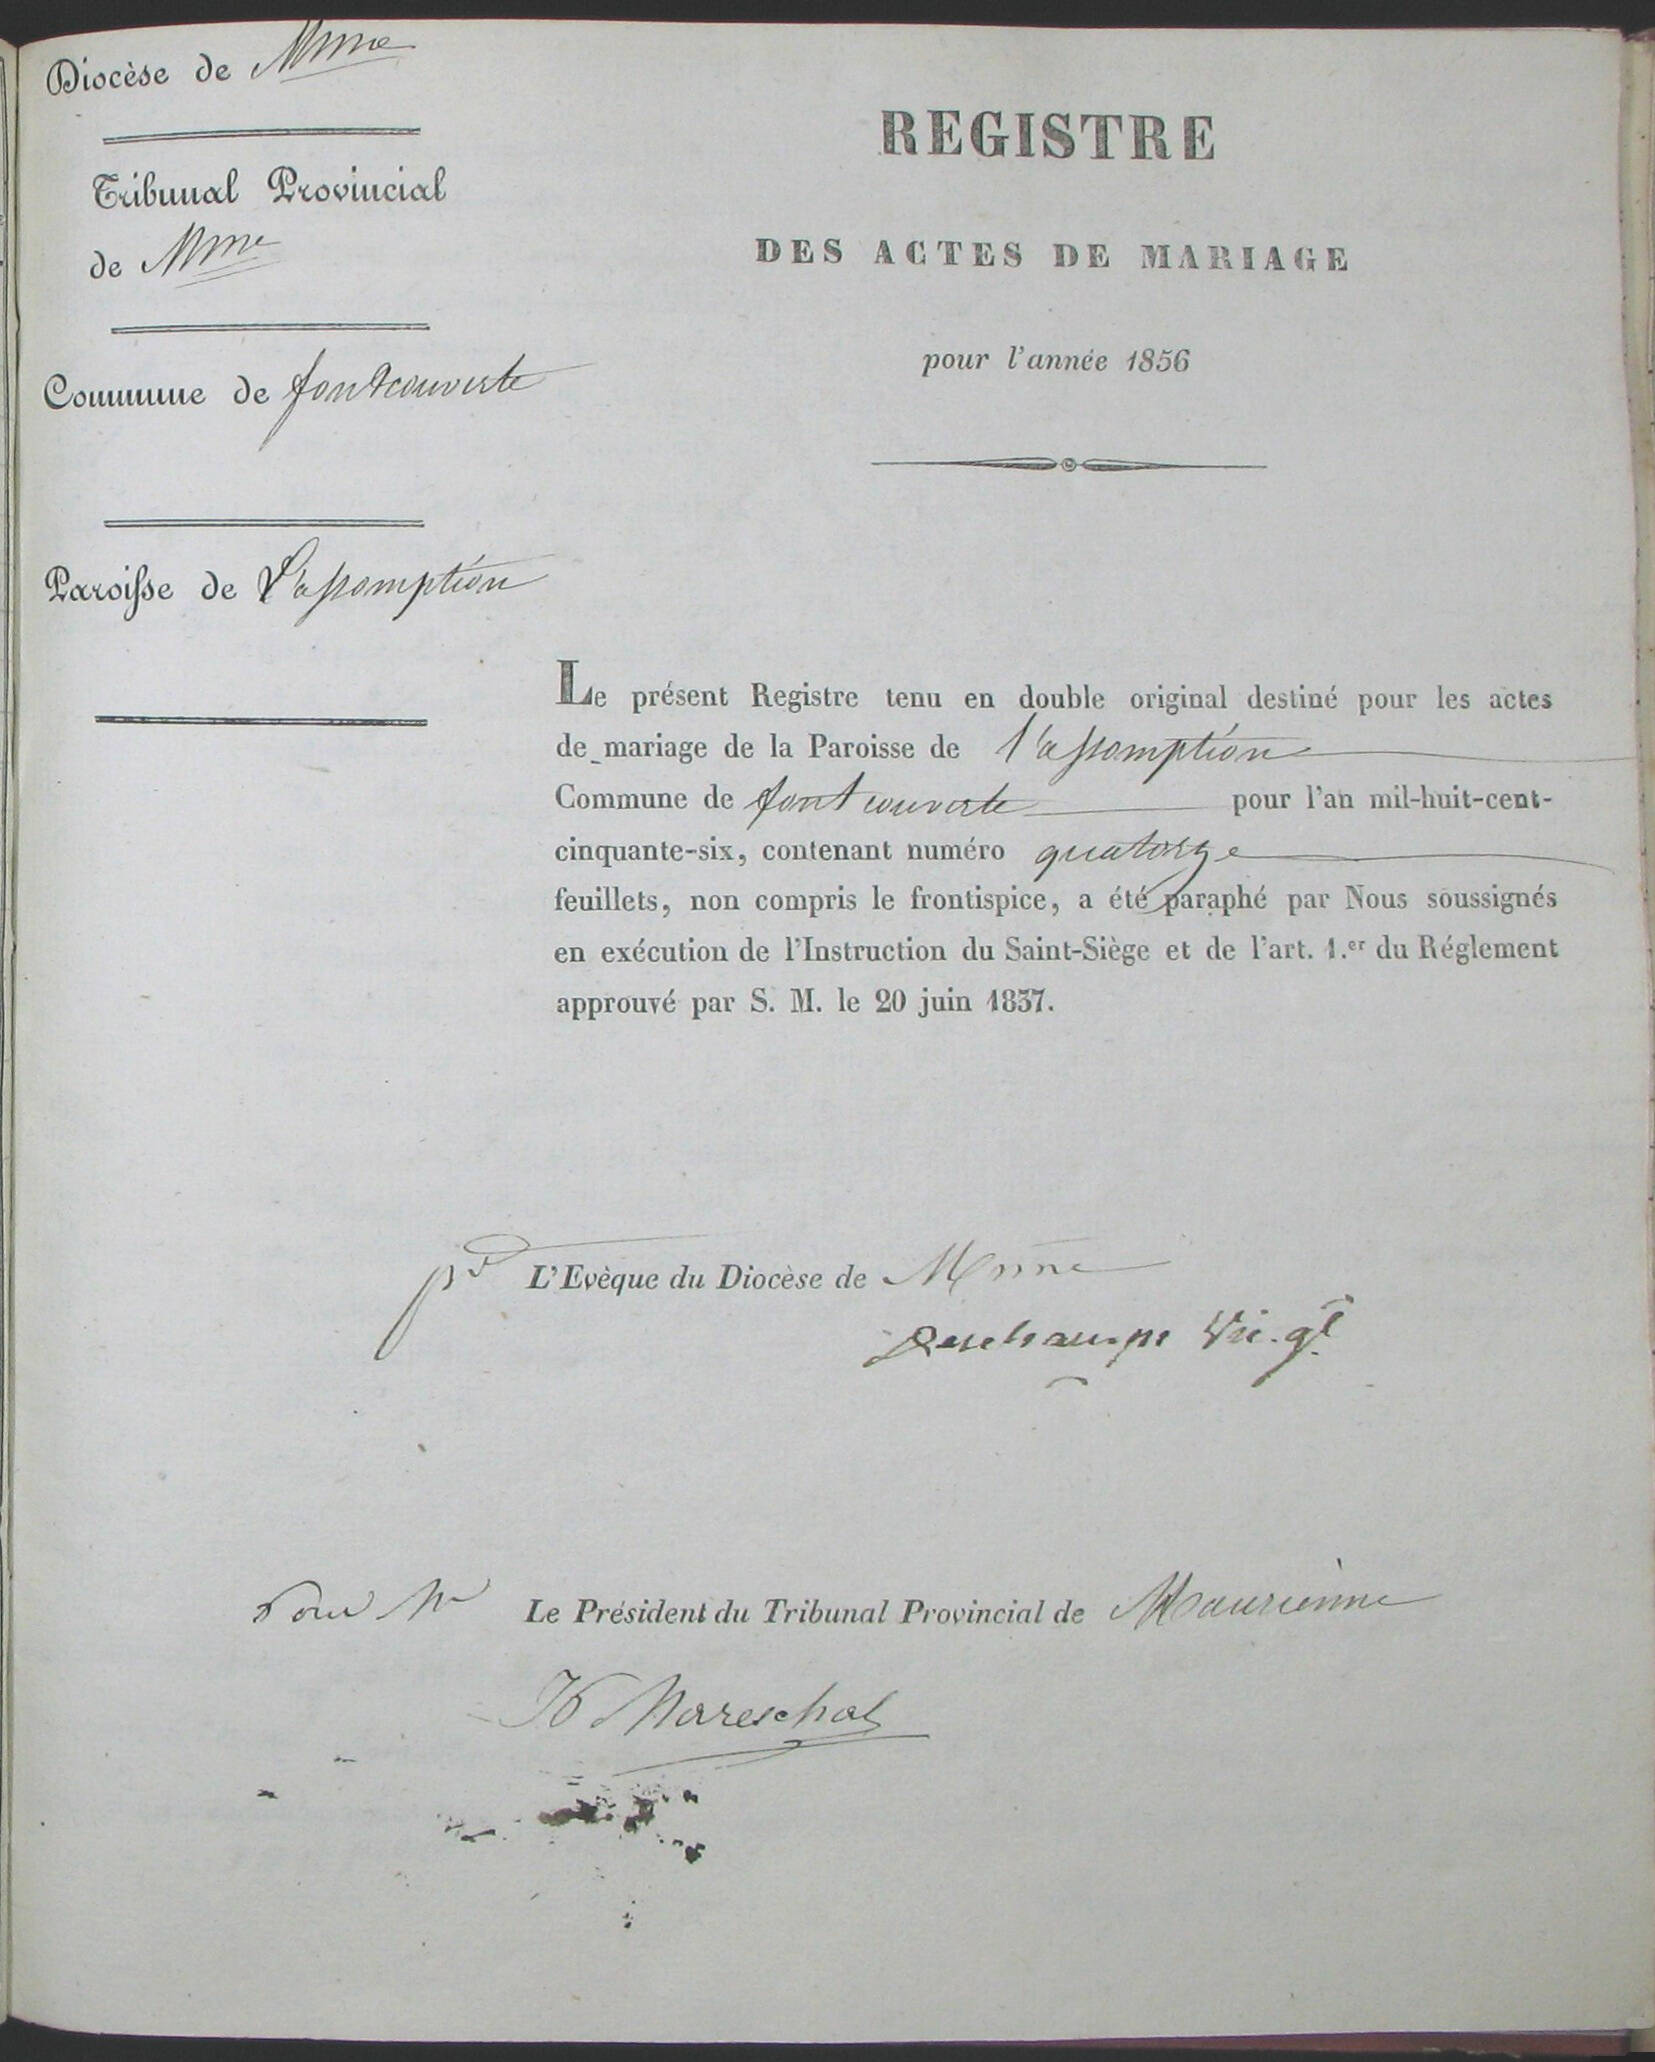 Diocèse de Mnne
Tribunal Provincial
de Mnne
Commune de fontcouverte
Paroisse de L'assomption
REGISTRE
DES ACTES DE MARIAGE
pour l'année 1856
Le présent Registre tenu en double original destiné pour les actes
de mariage de la Paroisse de l'assomption
Commune de fontcouverte pour l'an mil-huit-cent-
cinquante-six, contenant numéro quatorze
feuillets, non compris le frontispice, a été paraphé par Nous soussignés
en exécution de l'Instruction du Saint-Siège et de l'art. 1.er du Réglement
approuvé par S. M. le 20 juin 1837.
pr L'Evèque du Diocèse de Mnne
Deschamps Vic. gl
Pour Mr Le Président du Tribunal Provincial de Maurienne
Mareschal